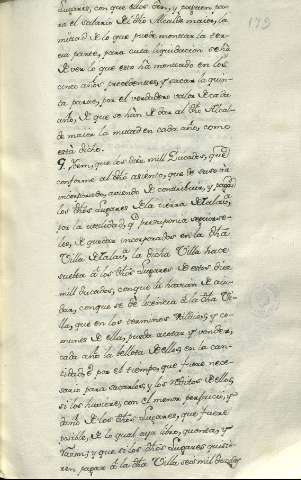 179
Lugares, con que ellos den, y paguen pa
ra el salario del dho Alcalde maior, la
mitad de lo que puede montar la ter
cia parte, para cuia liquidacion se ha
de ver lo que esto ha montado en los
cinco años precedentes, y sacar la quin
ta parte, por el verdadero valor de cada
año, de que se han de dar al dho Alcal
de maior la mitad en cada año, como
está dicho.
9. Item, que los diez mil Ducados, que
conforme al dho asiento, que de suso va
incorporado, avian de contribuir, y pagar
los dhos Lugares de la tierra de
por la utilidad, que presuponia seguirse
les, de quedar incorporados en la dha
Villa de la dicha Villa hace
suelta à los dhos Lugares de estos diez
mil ducados, con que la havian de aiu
dar, con que se dé licencia à la dha Vi
lla, que en los terminos valdios, y co
munes de ella, pueda acotar y vender,
cada año la bellota de ellos, en la can
tidad, por el tiempo, que fuere nece
sario para sacarlos, y los réditos de ellos,
si los huviere, con el menor perjuicio, y
daño de los dhos Lugares, que fuere
posible, de lo qual aya libro, quenta, y
razon; y que si los dhos Lugares quisie
ren pagar à la dha Villa seis mil ducados